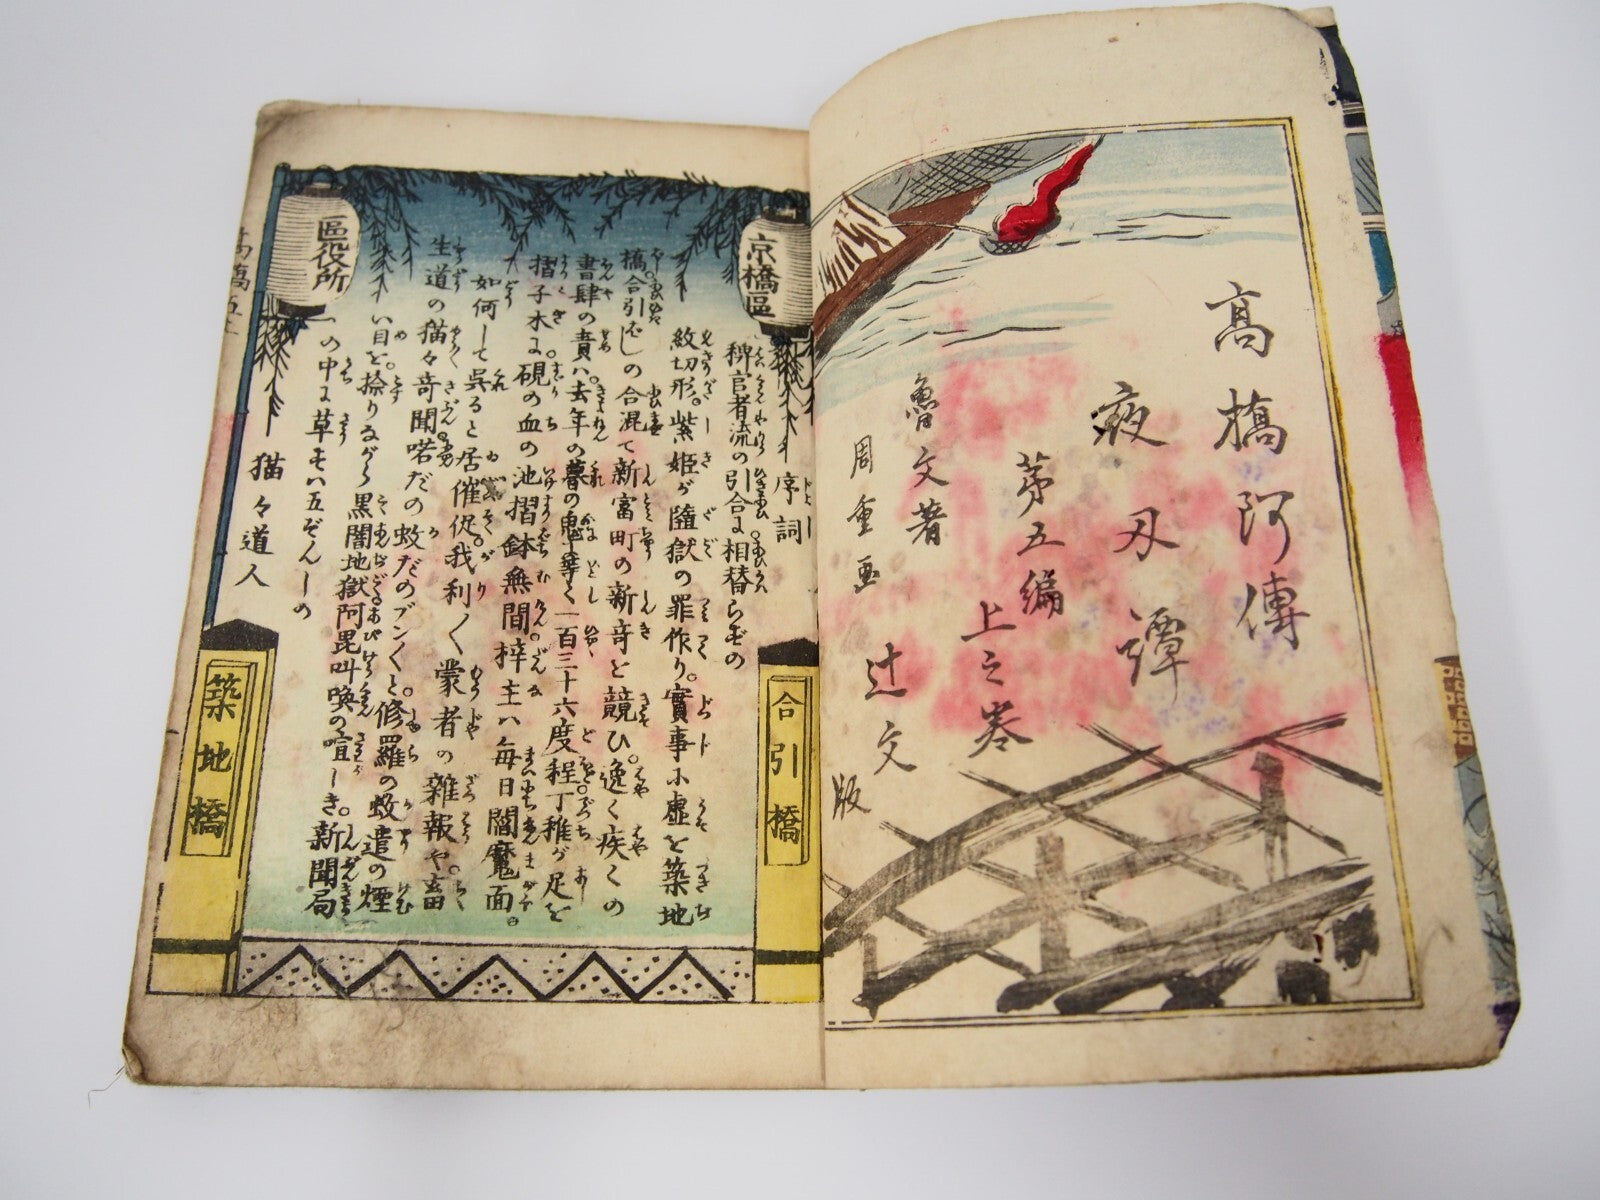 高橋阿傳
夜刃譚
第五編
上之巻
魯文著
周重画
辻文
版
京橋區
區役所
合引橋
築地橋
序詞
稗官者流の引合に相替らずの
紋切形。紫姫が墮獄の罪作り。實事小虚を築地
橋合引ばしの合混て新富町の新竒と競ひ。逸く疾くの
書肆の責ハ。去年の暮の鬼
一百三十六度程丁稚が足を
摺子木に。硯の血の池摺鉢無間梓主ハ毎日閻魔面。
如何して呉ると居催促
我利く蒙者の雜報や畜
生道の猫々竒聞喏だの蚊だのブンくと修羅の蚊遣の煙
い目を。捻りながら黒闇地獄阿毘叫喚の喧しき。新聞局
の中に草
猫々道人